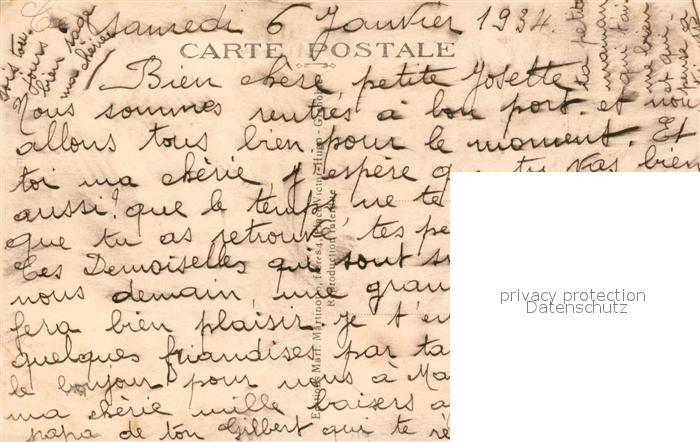 Samedi 6 Janvier 1934.
CARTE POSTALE
Bien chère petite Josette,
Nous sommes rentrés à bon port. et nous
allons tous bien pour le moment. Et
toi ma chérie j'espère que tu vas bien
aussi? que le temps ne te
que tu as retrouvé, tes pe
Ces Demoiselles qui sont
nous demain, une gran
fera bien plaisir. je t'en
quelques friandises par ta
le bonjour pour nous à Ma
ma chérie mille baisers a
papa de ton Gilbert qui te ré
sois toujours
bien sage
ma chérie
ta petite
maman
qui t'ai
me bien
et qui
pense à
Editions Mart. Martinotto, frères, 4, place Victor-Hugo - Grenoble
Reproduction interdite
privacy protection
Datenschutz